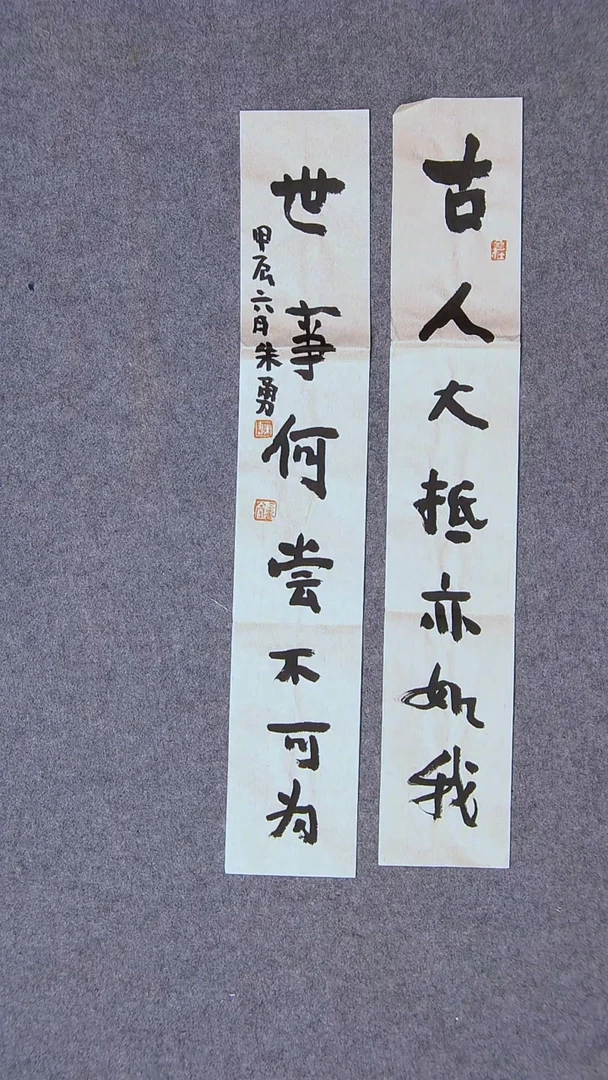 古人大抵亦如我
世事何尝不可为
甲辰六月朱勇